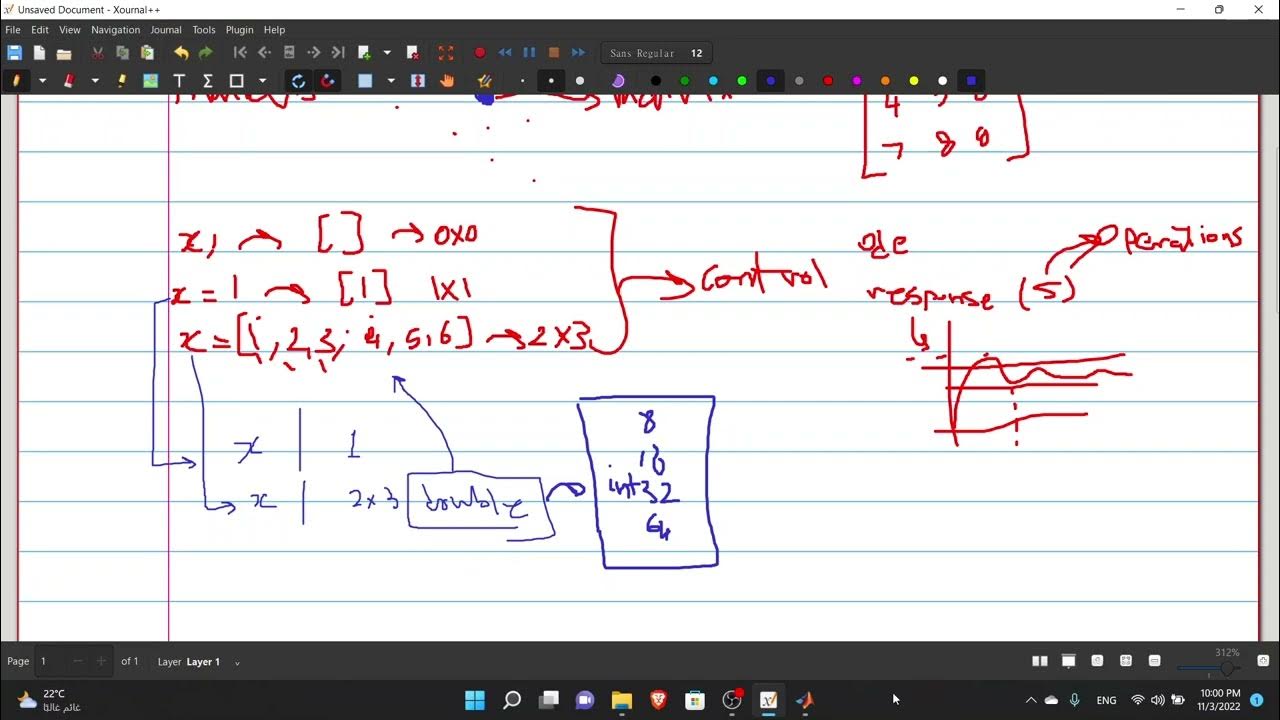 Unsaved Document - Xournal++
File Edit View Navigation Journal Tools Plugin Help
Sans Regular 12
4
7 8 8
x, → [ ] → 0x0
x = 1 → [1] 1x1
x = [1, 2, 3; 4, 5, 6] → 2x3
control
ode
operations
response (5)
x | 1
x | 2x3 double
8
16
int32
64
Page 1 of 1 Layer Layer 1
312%
22°C
غائم غالبًا
ENG
10:00 PM
11/3/2022
1